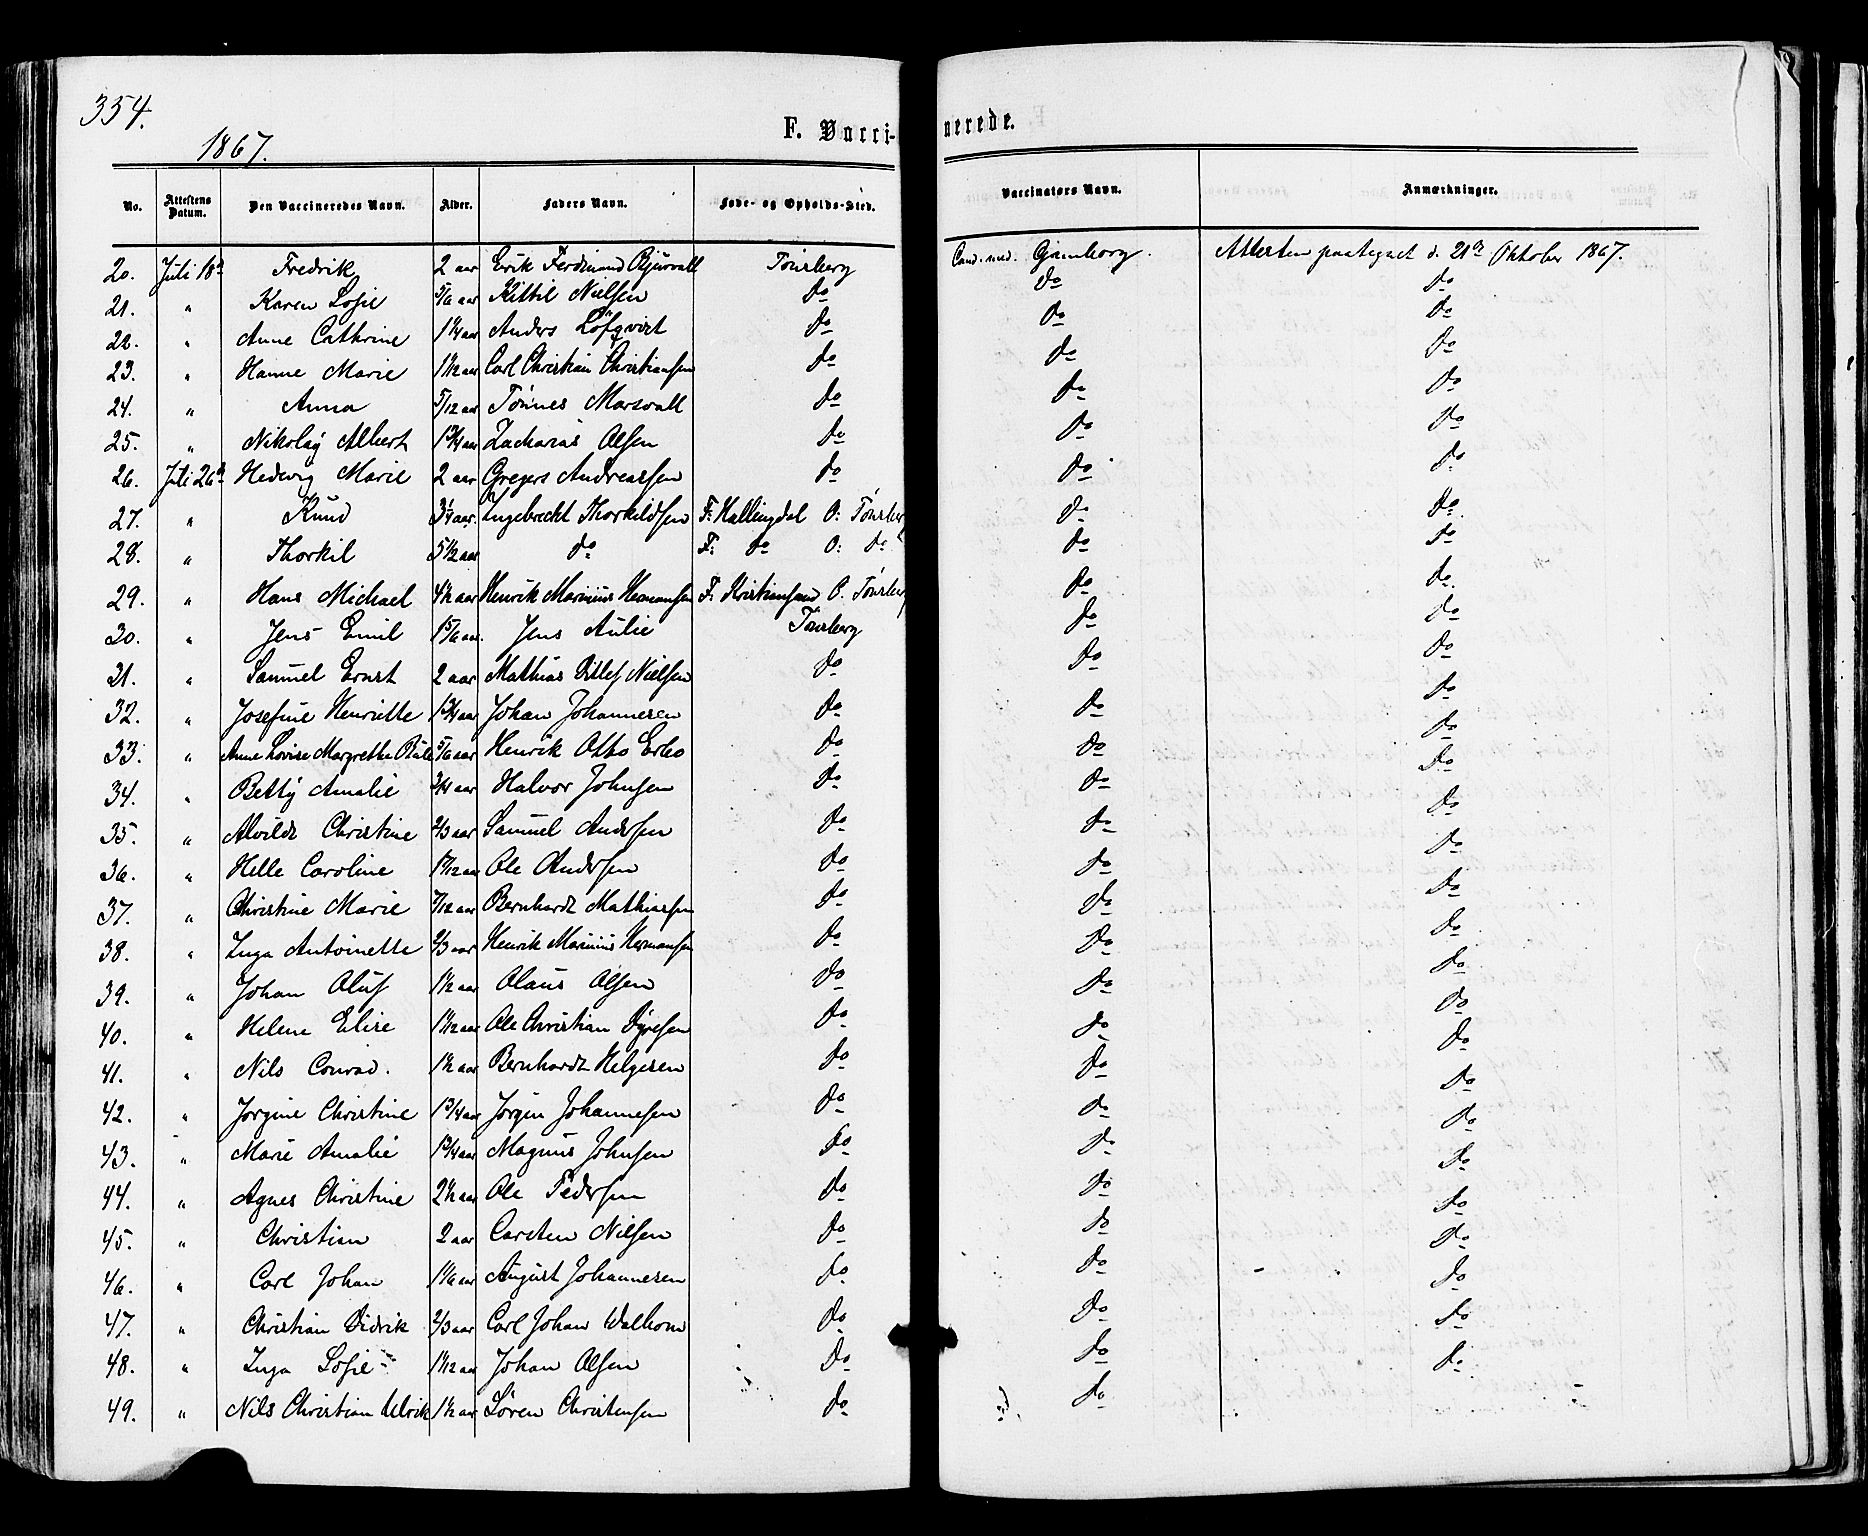 354.
1867.
F. Vaccinerede.
No. Attestens Datum. Den Vaccineredes Navn. Alder. Faders Navn. Føde- og Opholds-Sted. Vaccinators Navn. Anmærkninger.
20. Juli 18d Fredrik 2 aar Erik Ferdinand Bjurvall Tønsberg Cand. med. Gjemborg. Attesten paategnet d. 21de Oktober 1867.
21. " Karen Sofie 5/6 aar Kittil Nielsen do do do
22. " Anne Cathrine 1 1/4 aar Anders Löfqvist do do do
23. " Hanne Marie 1 1/2 aar Carl Christian Christiansen do do do
24. " Anna 5/12 aar Tønnes Marsvall do do do
25. " Nikolay Albert 1 3/4 aar Zacharias Olsen do do do
26. Juli 26d Hedevig Marie 2 aar Gregers Andreassen do do do
27. " Knud 3 1/4 aar. Ingebreckt Thorkildsen F: Hallingdal O: Tønsberg do do
28. " Thorkil 5 1/2 aar do F: do O: do do do
29. " Hans Michael 4 1/2 aar Henrik Marinius Hermansen F: Kristiansand O. Tønsberg do do
30. " Jens Emil 1 5/6 aar. Jens Aulie Tønsberg do do
31. " Samuel Ernst 2 aar Mathias Ditlef Nielsen do do do
32. " Josefine Henriette 1 3/4 aar Johan Johannesen do do do
33. " Anne Lovise Margrethe 5/6 aar Henrik Otto Erbo do do do
34. " Betty Amalie 3/4 aar Halvor Johnsen do do do
35. " Alvilde Christine 2/3 aar Samuel Andersen do do do
36. " Helle Caroline aar Ole Andersen do do do
37. " Christine Marie 7/12 aar Bernhardt Mathiassen do do do
38. " Inga Antoinette 2/3 aar Henrik Marinius Hermansen do do do
39. " Johan Oluf 1 1/2 aar Olaus Olsen do do do
40. " Helene Elise 1 1/12 aar Ole Christian Dyresen do do do
41. " Nils Conrad. 1 1/2 aar Bernhardt Helgesen do do do
42. " Jørgine Christine 1 3/4 aar Jørgen Johannesen do do do
43. " Marie Amalie 1 3/4 aar Magnus Johnsen do do do
44. " Agnes Christine 2 1/2 aar Ole Pedersen do do do
45. " Christian 2 aar Carsten Nilsen do do do
46. " Carl Johan 1 1/6 aar August Johannesen do do do
47. " Christian Didrik 2/3 aar Carl Johan Walhom do do do
48. " Inga Sofie 1 1/12 aar Johan Olsen do do do
49. " Nils Christian Ulrik 1 1/2 aar Søren Christensen do do